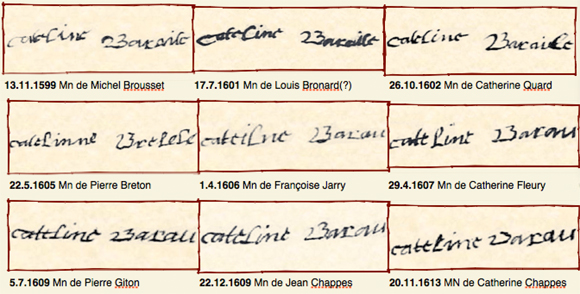 cateline Baraile cateline Baraille cateline Baraille
13.11.1599 Mn de Michel Brousset 17.7.1601 Mn de Louis Bronard(?) 26.10.1602 Mn de Catherine Quard
catelinne Barau cateline Barau
22.5.1605 Mn de Pierre Breton 1.4.1606 Mn de Françoise Jarry 29.4.1607 Mn de Catherine Fleury
catteline Barau catteline Barau catteline Barau
5.7.1609 Mn de Pierre Giton 22.12.1609 Mn de Jean Chappes 20.11.1613 MN de Catherine Chappes